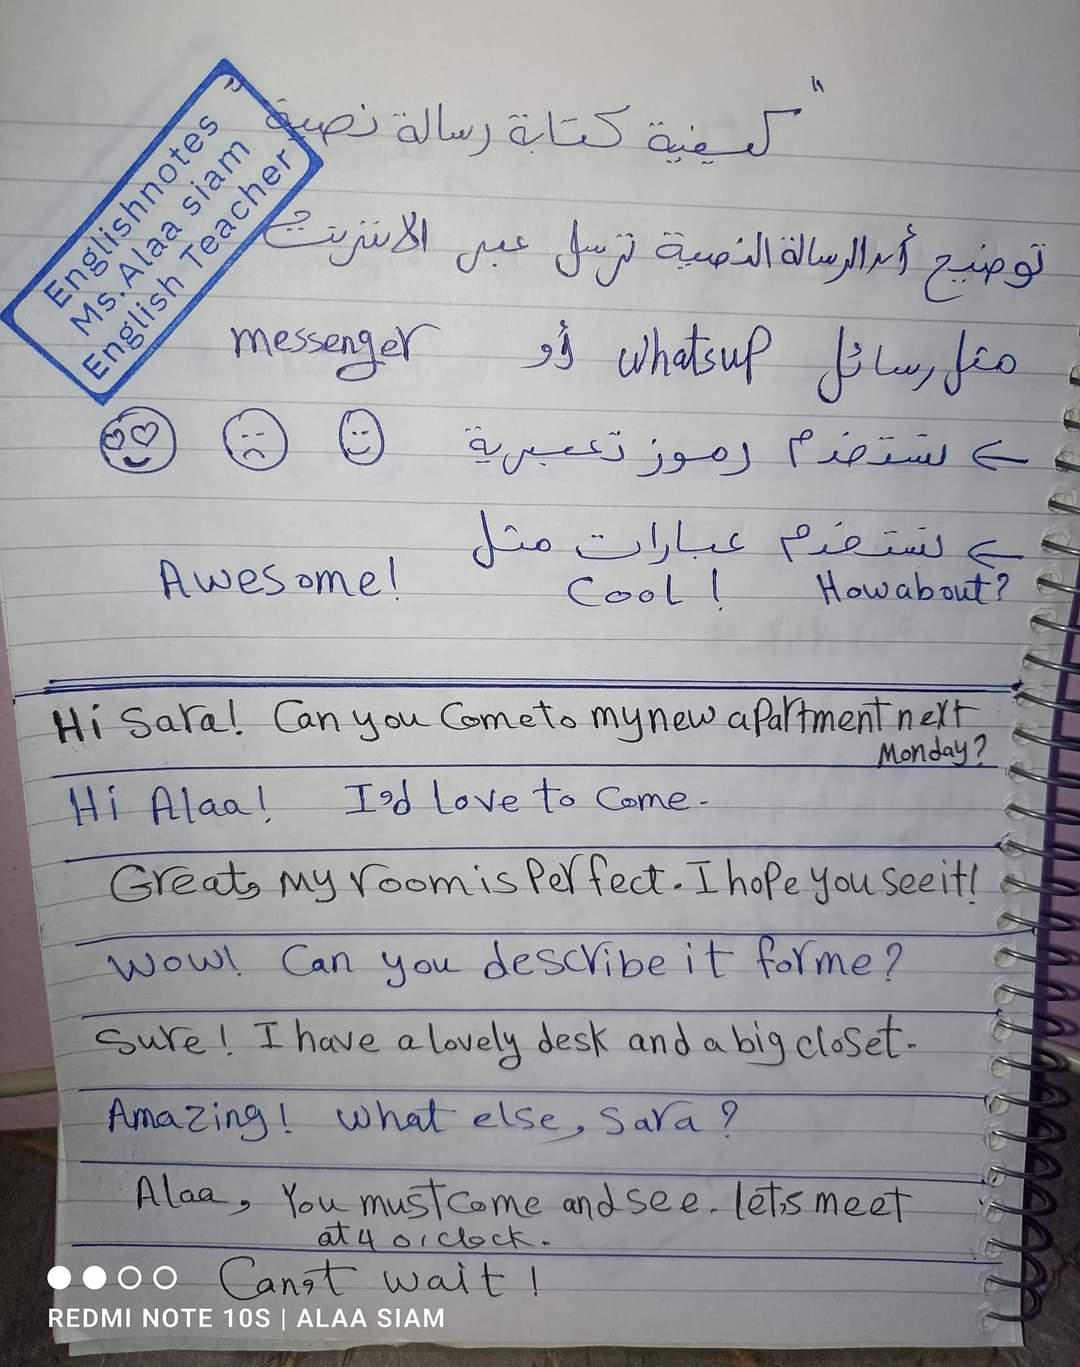 Englishnotes
Ms. Alaa siam
English Teacher
"كيفية كتابة رسالة نصية"
توضيح أن الرسالة النصية ترسل عبر الانترنت
مثل رسائل whatsup أو messenger
← نستخدم رموز تعبيرية
← نستخدم عبارات مثل
How about? Cool! Awesome!
Hi Sara! Can you come to my new apartment next
Monday?
Hi Alaa! I'd love to come.
Great, my room is perfect. I hope you see it!
Wow! Can you describe it for me?
Sure! I have a lovely desk and a big closet.
Amazing! What else, Sara?
Alaa, You must come and see. let's meet
at 4 o'clock.
Can't wait!
REDMI NOTE 10S | ALAA SIAM